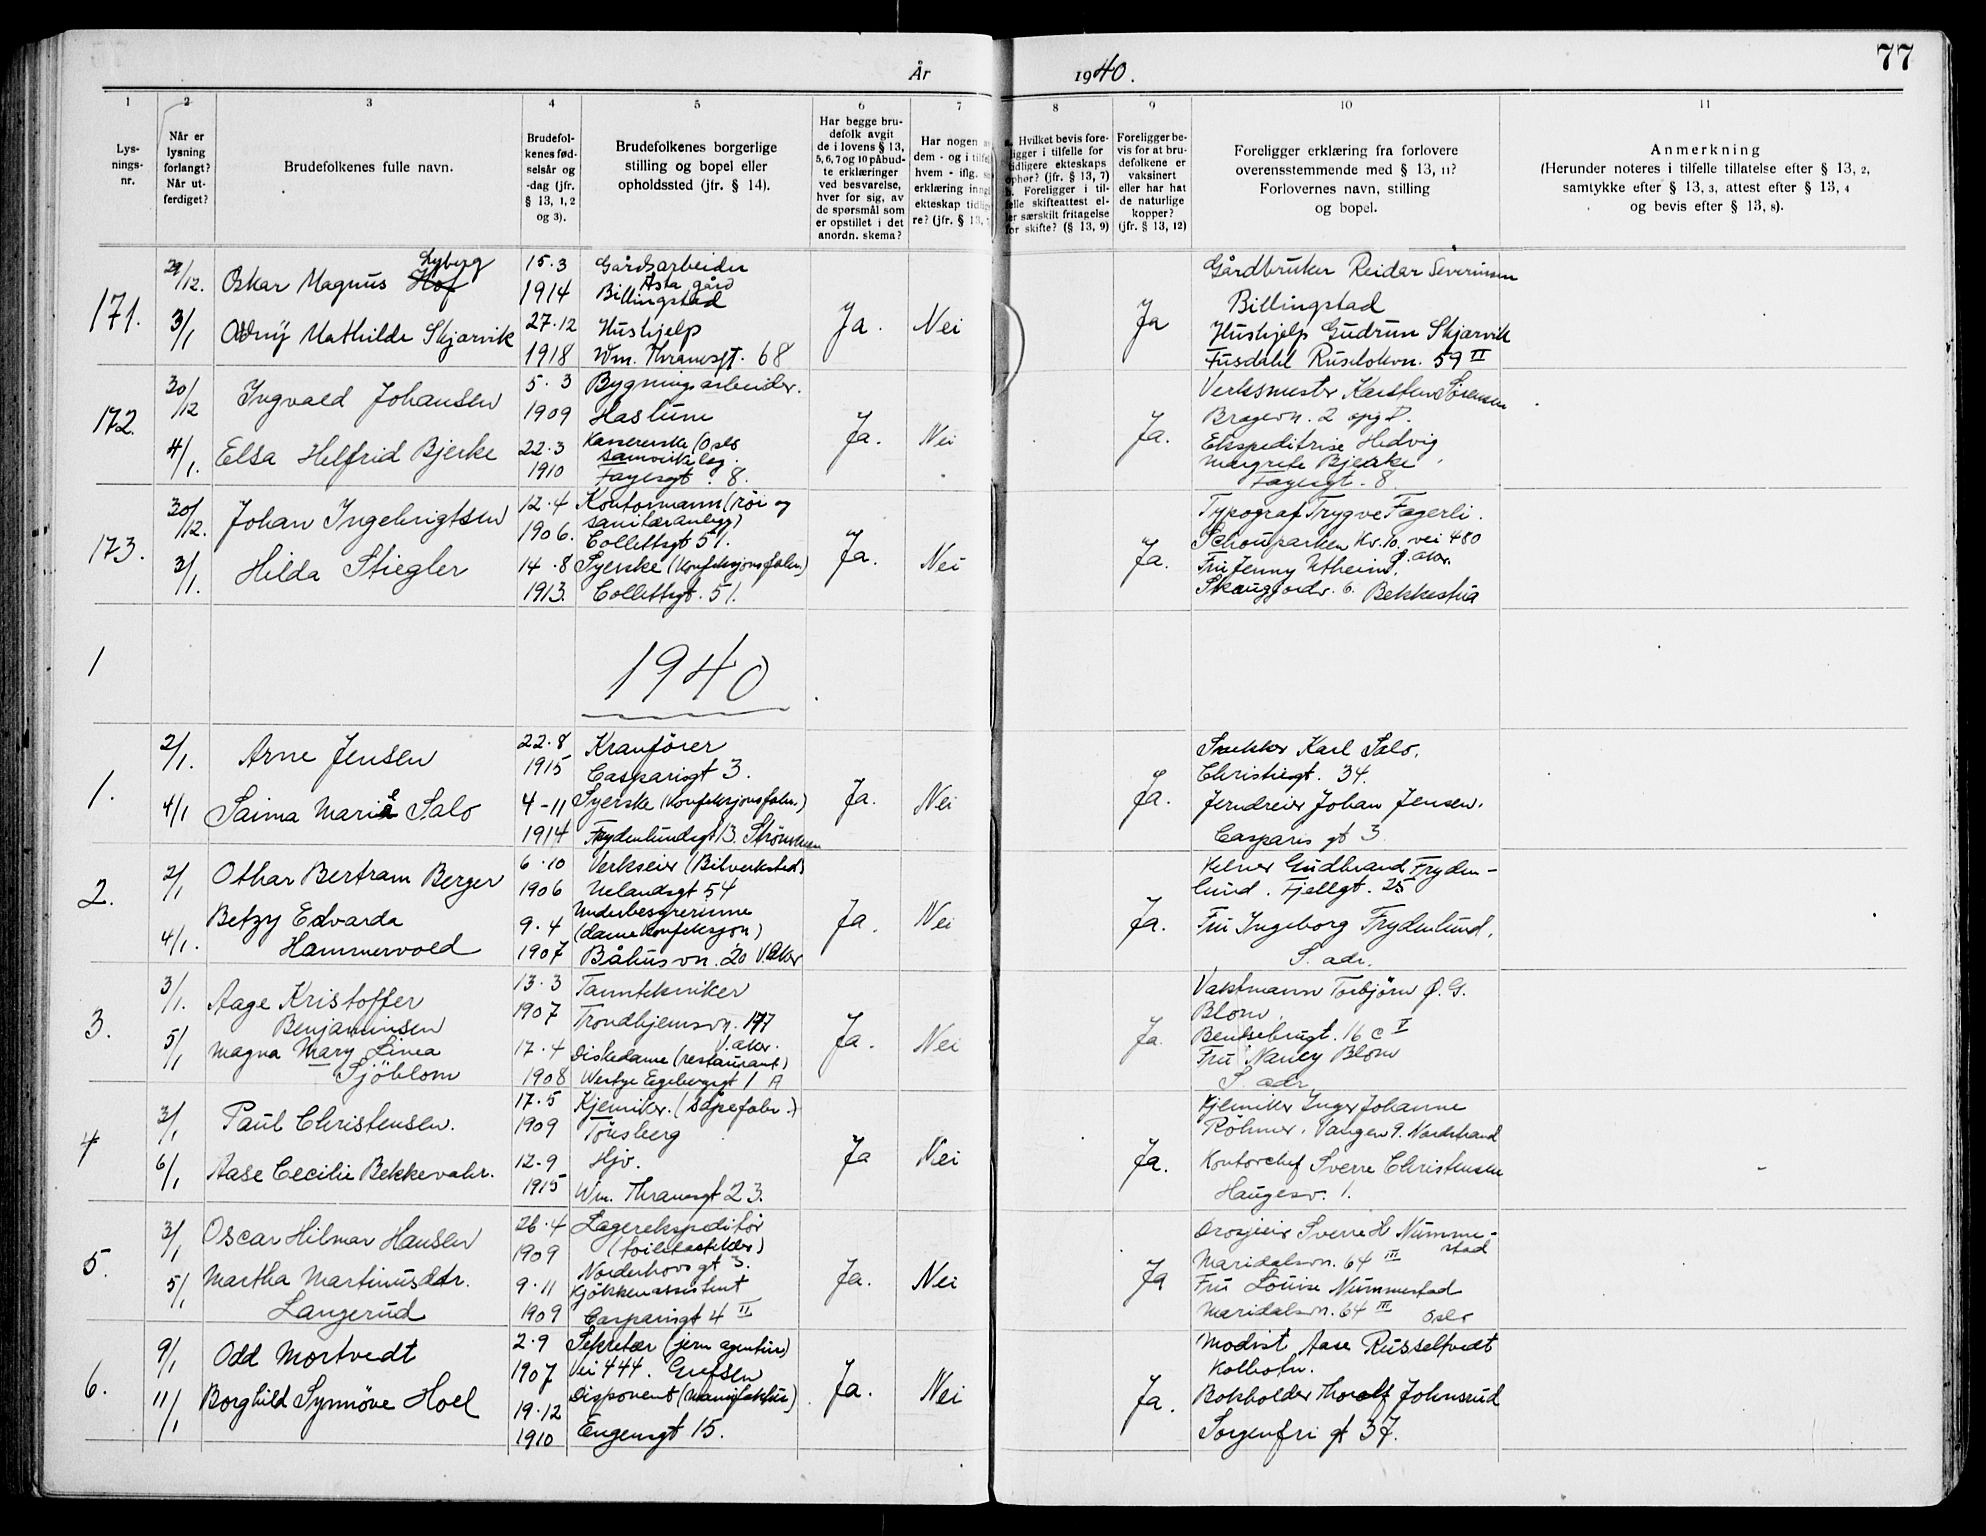 År 1940.
77
1 2 3 4 5 6 7 8 9 10 11
Lys-
nings-
nr.
Når er
lysning
forlangt?
Når ut-
ferdiget?
Brudefolkenes fulle navn.
Brudefol-
kenes fød-
selsår og
-dag (jfr.
§ 13, 1, 2
og 3).
Brudefolkenes borgerlige
stilling og bopel eller
opholdssted (jfr. § 14).
Har begge bru-
defolk avgit
de i lovens § 13,
5, 6, 7 og 10 påbud-
te erklæringer
ved besvarelse,
hver for sig, av
de spørsmål som
er opstillet i det
anordn. skema?
Har nogen a
dem - og i tilfel
hvem - iflg. s
erklæring inng
ekteskap tidlig
re? (jfr. § 13,
a. Hvilket bevis fore-
ligger i tilfelle for
tidligere ekteskaps
ophør? (jfr. § 13, 7)
b. Foreligger i til-
felle skifteattest el-
ler særskilt fritagelse
for skifte? (§ 13, 9)
Foreligger be-
vis for at bru-
defolkene er
vaksinert
eller har hat
de naturlige
kopper?
(jfr. § 13, 12)
Foreligger erklæring fra forlovere
overensstemmende med § 13, 11?
Forlovernes navn, stilling
og bopel.
Anmerkning
(Herunder noteres i tilfelle tillatelse efter § 13, 2,
samtykke efter § 13, 3, attest efter § 13, 4
og bevis efter § 13, 8).
171.
29/12.
3/1
Lyberg
Oskar Magnus Hof
Odny Mathilde Skjærvik
15.3
1914
27.12
1918
Gårdsarbeider
Asta gård
Billingstad
Hushjelp
Wm. Thranesgt. 68
Ja.
Nei
Ja
Gårdbruker Reidar Severinsen
Billingstad
Hushjelp Gudrun Skjærvik
Fusdahl Ruseløkvn. 59 II
172.
30/12
4/1.
Ingvald Johansen
Elsa Helfrid Bjerke
5.3
1909
22.3
1910
Bygningsarbeider.
Haslum
Kassererske (Oslo
samvirkelag.
Fayesgt. 8.
Ja.
Nei
Ja.
Verksmester Karsten Sørensen
Bragevn. 2 opg D.
Ekspeditrise Hedvig
Margrete Bjerke
Fayesgt. 8
173.
30/12.
3/1.
Johan Ingebrigtsen
Hilda Stiegler
12.4
1906.
14.8
1913.
Kontormann (rør og
sanitæranlegg)
Collettsgt 51.
Syerske (Konfeksjonsfabr.)
Collettsgt. 51.
Ja.
Nei
Ja.
Typograf Trygve Fagerli.
Schouparken Kv. 10. vei 480
Ø. aker.
Fru Jenny Utheim.
Bekkestua
1
1940
1.
2/1.
4/1
Arne Jensen
Saima Marie Salo
22.8
1915
4-11
1914
Kranfører
Casparisgt 3.
Syerske (Konfeksjonsfabr.)
Frydenlundsgt 13. Strømmen
Ja.
Nei
Ja.
Snekker Karl Salo.
Christiesgt. 34.
Jerndreier Johan Jensen.
Casparis gt 3
2.
2/1
4/1.
Othar Bertram Berger
Betzy Edvarda
Hammervold
6.10
1906
9.4
1907
Verkseier (Bilverksted)
Uelandsgt 54
Underbestyrerinne
(damekonfeksjon)
Båhusvn. 20 V.Aker
Ja.
Nei
Ja.
Kelner Gudbrand Fryden-
lund. Fjellgt. 25
Fru Ingeborg Frydenlund.
S. adr.
3.
3/1.
5/1
Aage Kristoffer
Benjaminsen
Magna Mary Linea
Sjöblom
13.3
1907
17.4
1908
Tanntekniker
Trondhjemsvn. 177
V. aker.
Diskedame (restaurant)
Westye Egebergsgt 1 A
Ja.
Nei
Ja.
Vaktmann Torbjörn Ø. G.
Blom.
Bentsebrugt. 16 c I
Fru Nancy Blom
S adr
4
3/1
6/1
Paul Christensen.
Aase Cecilie Bekkevahr.
17.5
1909
12-9
1915
Kjemiker. (såpefabr.)
Tönsberg
Hjv.
Wm. Thranesgt 23.
Ja
Nei
Ja.
Kjemiker Inger Johanne
Röhmer. Vangen 9. Nordstrand
Kontorchef Sverre Christensen
Haugesv. 1.
5.
3/1
5/1
Oscar Hilmar Hansen
Martha Martinusdtr.
Langerud
26.4
1909
9.11
1909
Lagerekspeditör
(toilettartikler)
Norderhovsgt 3.
Kjökkenassistent
Casparisgt 4 II
Ja.
Nei
Ja
Drosjeeier Sverre H Numme-
stad
Maridalsvn. 64 III
Fru Louise Nummestad
Maridalsvn. 64 III Oslo
6.
9/1
11/1
Odd Mortvedt
Borghild Synnöve Hoel
2.9
1907
19.12
1910
Sekretær (jern agentur)
Vei 444. Grefsen
Disponent (manufaktur)
Eugensgt 15.
Ja.
Nei
Ja.
Modist Aase Russeltvedt
Kolbotn.
Bokholder Thorolf Johnsrud
Sorgenfri gt 37.